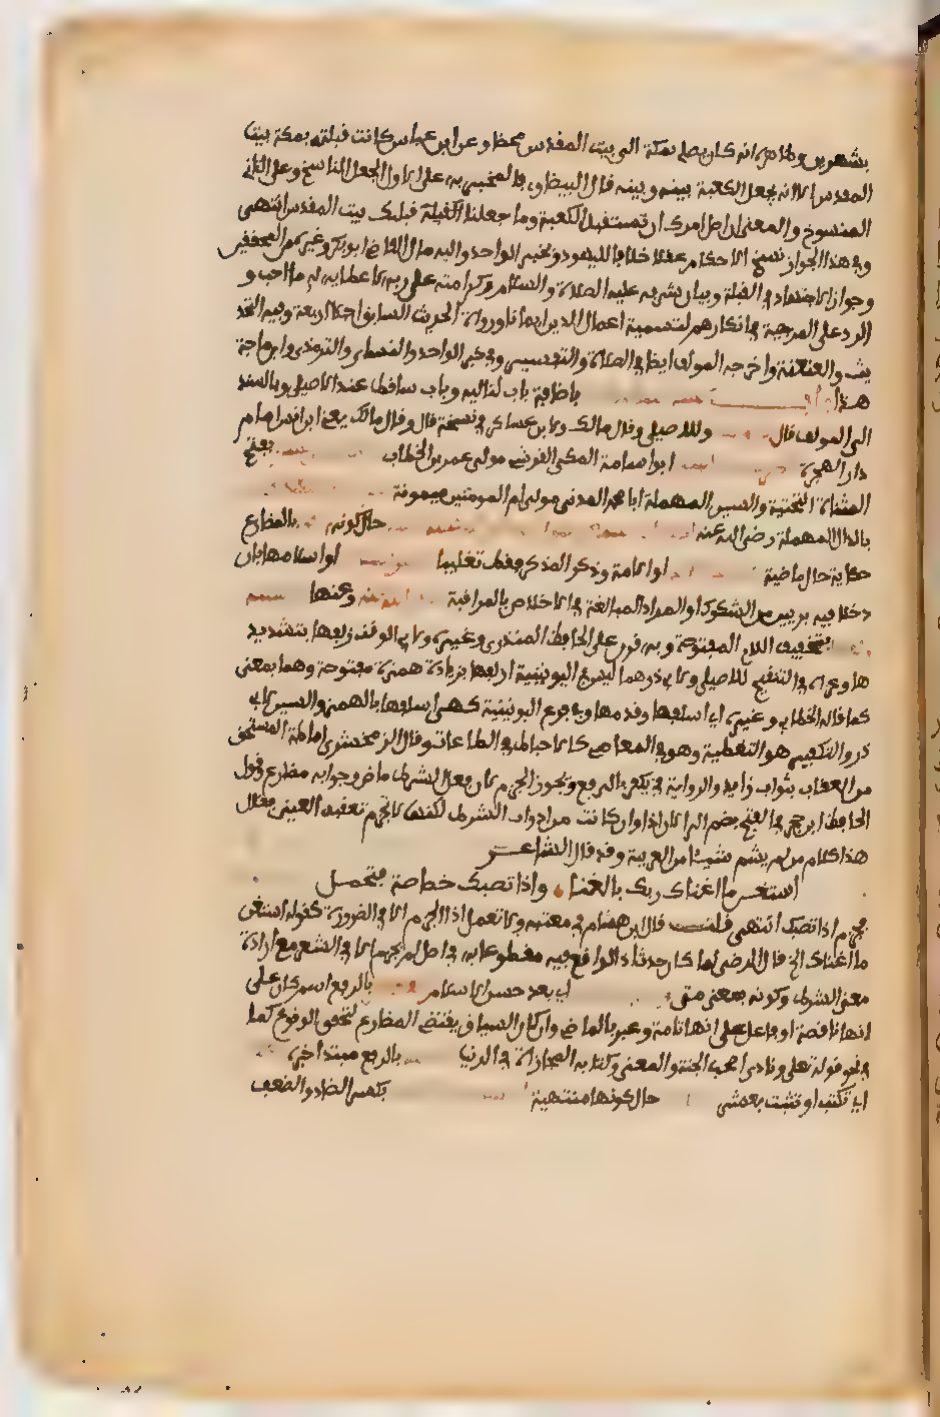 بشهرين وظاهره انه كان يصلي بمكة الى بيت المقدس محضا وعن ابن عباس كانت قبلته بمكة بيت
المقدس الا انه يجعل الكعبة بينه وبينه قال البيضاوي فالمخبر به على الاول الجعل الناسخ وعلى الثاني
المنسوخ والمعنى ان اصل امرك ان تستقبل الكعبة وما جعلنا القبلة قبلتك بيت المقدس انتهى
وفي هذا جواز نسخ الاحكام خلافا لليهود وبخبر الواحد واليه مال القاضي ابو بكر وغيره من المحققين
وجواز الاجتهاد في القبلة وبيان شرفه عليه الصلاة والسلام وكرامته على ربه لاعطائه له ما احب و
الرد على المرجية في انكارهم تسمية اعمال الدين ايمانا ورواة الحديث السابق اجلا اربعة وفيه التحد
يث والعنعنة واخرجه المولف ايضا في الصلاة والتفسير وفي خبر الواحد والنسائي والترمذي وابن ماجة
هذا باضافة باب لتاليه وباب ساقط عند الاصيلي وبالسند
الى المولف قال وللاصيلي وقال مالك ولابن عساكر في نسخة قال وقال مالك يعني ابن انس امام
دار الهجرة ابو اسامة المكي القرشي مولى عمر بن الخطاب بفتح
المثناة التحتية والسين المهملة ابا محمد المدني مولى ام المومنين ميمونة
بالدال المهملة رضي الله عنه حال كونه بالمضارع
حكاية حال ماضية او الامة وذكر المذكر فقط تغليبا او اسلامها بان
دخلا فيه بريين من الشكوك او المراد المبالغة في الاخلاص بالمراقبة وعنها
بتخفيف اللام المفتوحة وبه قرئ على الحافظ المنذري وغيره ولابي الوقت زلفها بتشديد
ها وعزاه في التنقيح للاصيلي ولابي ذر مما ليس في اليونينية ازلفها بزيادة همزة مفتوحة وهما بمعنى
كما قاله الخطابي وغيره اي اسلفها وقدمها وفي فرع اليونينية كهي اسلفها بالهمز والسين لابي
ذر والتكفير هو التغطية وهو في المعاصي كالاحباط في الطاعات وقال الزمخشري اماطة المستحق
من العقاب بثواب زايد والرواية في يكفر بالرفع ويجوز الجزم لان فعل الشرط ماض وجوابه مضارع وقول
الحافظ ابن حجر في الفتح بضم الراء لان اذا وان كانت من ادوات الشرط لكنها لا تجزم تعقبه العيني فقال
هذا كلام من لم يشم شيئا من العربية وقد قال الشاعر
استغن ما اغناك ربك بالغنى واذا تصبك خصاصة فتحمل
فجزم اذا تصبك انتهى قلت قال ابن هشام في مغنيه ولا تعمل اذا الجزم الا في الضرورة كقوله استغن
ما اغناك الخ قال الرضي لما كان حدث اذا الواقع فيه مقطوعا به في اصل لم تجزم الا في الشعر مع ارادة
معنى الشرط وكونه بمعنى متى اي بعد حسن الاسلام بالرفع اسم كان على
انها ناقصة او فاعل على انها تامة وعبر بالماضي وان كان السياق يقتضي المضارع لتحقق الوقوع كما
في نحو قوله تعالى ونادى اصحاب الجنة والمعنى وكتابة المجازاة في الدنيا بالرفع مبتدا خبره
اي تكتب او تثبت بعشر حال كونها منتهية بكسر الضاد والضعف